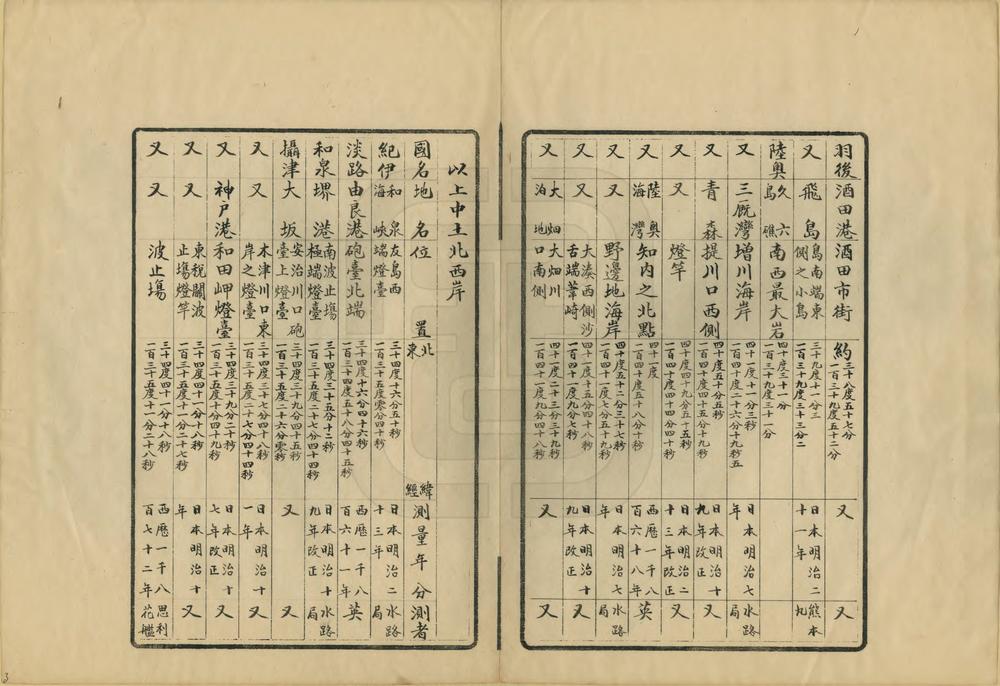 羽後 酒田港 酒田市街 約 三十八度五十七分 一百三十九度五十二分 又 又
又 飛島 島南端東側之小島 三十九度十一分三 一百三十九度三十三分二 日本明治二十一年 熊本丸
陸奧 久六島礁 南西最大岩 四十度三十一分 一百三十九度三十一分
又 三厩灣 增川海岸 四十一度十一分三秒 一百四十度二十六分十九秒五 日本明治七年 水路局
又 青森 提川口西側 四十度五十五分五秒 一百四十度四十五分十九秒 日本明治十九年改正 又
又 又 燈竿 四十度四十九分五十五秒 日本明治二十三年改正 又
又 陸奧海灣 知内之北點 四十一度 一百四十度五十八分十秒 西曆一千八百六十八年 英
又 又 野邊地海岸 四十度五十二分三十七秒 一百四十一度七分五十九秒 日本明治七年 水路局
又 又 大湊西側沙舌端葦崎 四十一度十五分四十八秒 一百四十一度九分七秒 日本明治十九年改正 又
又 大畑泊地 大畑川口南側 四十一度二十三分十秒 一百四十一度九分四十八秒 又 又
以上中土北西岸
國名 地名 位置 北東 緯經 測量年分 測者
紀伊 和泉海峽 友島西端燈臺 三十四度十六分五十秒 一百三十五度零分四十秒 日本明治二十三年 水路局
淡路 由良港 砲臺北端 三十四度十六分四十六秒 一百三十四度五十八分四十五秒 西曆一千八百六十一年 英
和泉 堺港 南波止塲極端燈臺 三十四度三十五分十二秒 一百三十五度二十七分四十四秒 日本明治十九年改正 局
攝津 大坂 安治川口砲臺上燈臺 三十四度三十九分四十五秒 一百三十五度二十六分零秒 又 又
又 又 木津川口東岸之燈臺 三十四度三十七分四十八秒 一百三十五度二十七分四十四秒 日本明治十一年
又 神戸港 和田岬燈臺 三十四度三十九分二十秒 一百三十五度十分四十九秒 日本明治十七年改正 又
又 又 東税關波止塲燈竿 三十四度四十一分十八秒 一百三十五度十一分二十七秒 日本明治十年 又
又 又 波止塲 三十四度四十一分十八秒 一百三十五度十一分二十八秒 西曆一千八百七十二年 思利花艦